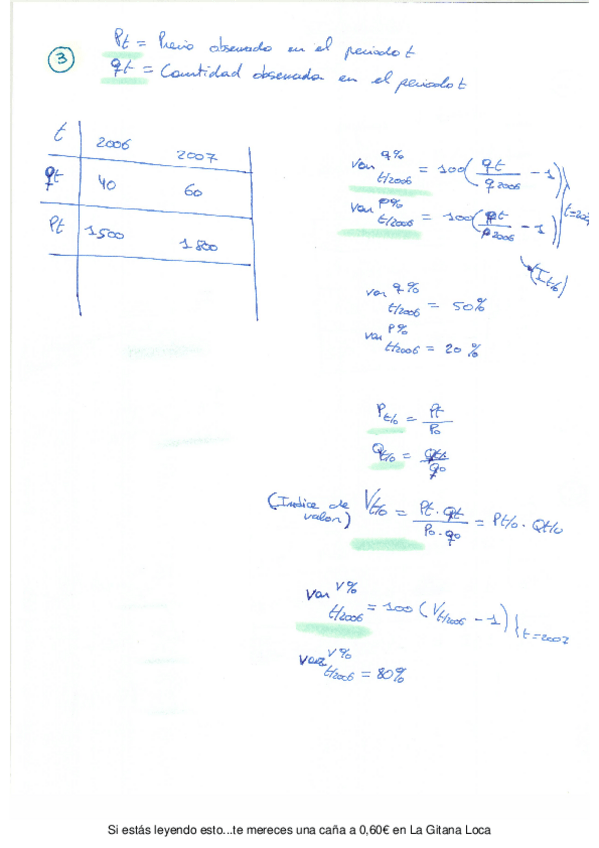 3
Pt = Precio observado en el periodo t
qt = Cantidad observada en el periodo t
t 2006 2007
qt 40 60
Pt 1500 1800
var q% t/2006 = 100 (qt / q2006 - 1)
var p% t/2006 = 100 (pt / p2006 - 1)
t=2007
(I t/0)
var q% t/2006 = 50%
var p% t/2006 = 20%
P t/0 = Pt / P0
Q t/0 = qt / q0
(Indice de valor) V t/0 = Pt · qt / P0 · q0 = P t/0 · Q t/0
var V% t/2006 = 100 (V t/2006 - 1) | t=2007
var V% t/2006 = 80%
Si estás leyendo esto...te mereces una caña a 0,60€ en La Gitana Loca